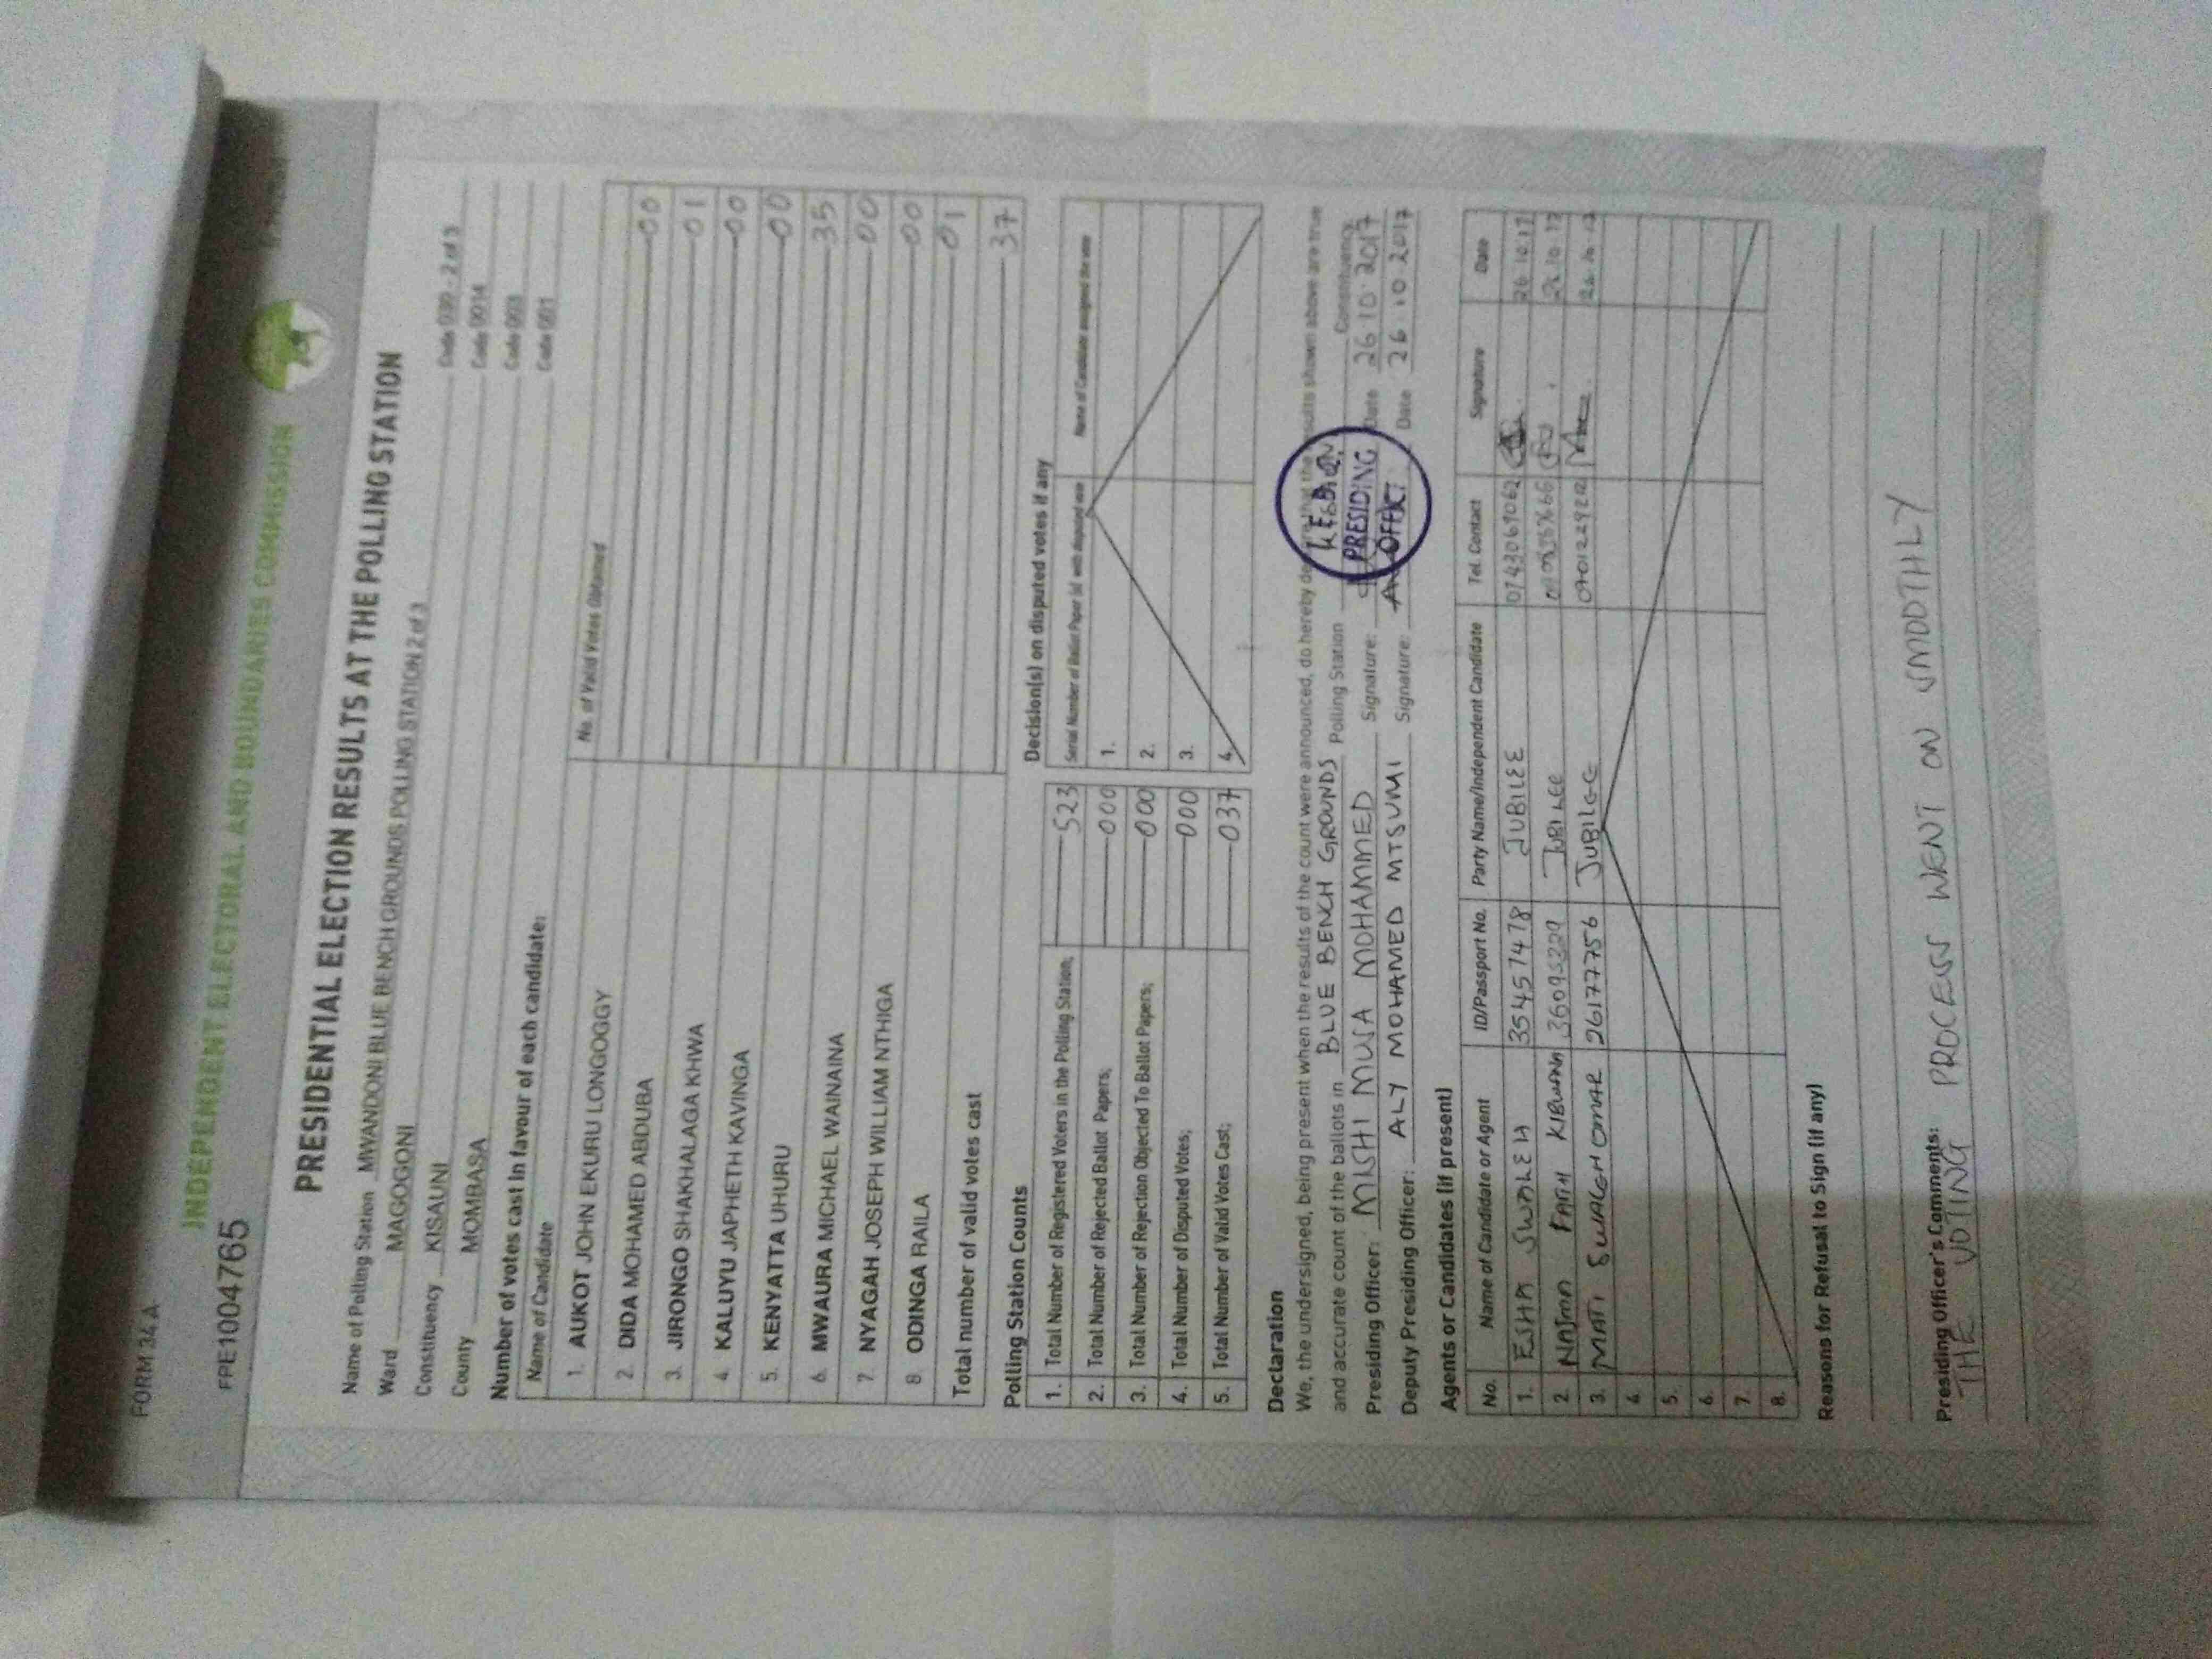 FORM 34 A
INDEPENDENT ELECTORAL AND BOUNDARIES COMMISSION
FPE1004765
PRESIDENTIAL ELECTION RESULTS AT THE POLLING STATION
Name of Polling Station MWANDONI BLUE BENCH GROUNDS POLLING STATION 2 of 3 Code 030 - 2 of 3
Ward MAGOGONI Code 0014
Constituency KISAUNI Code 003
County MOMBASA Code 001
Number of votes cast in favour of each candidate:
Name of Candidate No. of Valid Votes Obtained
1. AUKOT JOHN EKURU LONGOGGY 00
2. DIDA MOHAMED ABDUBA 01
3. JIRONGO SHAKHALAGA KHWA 00
4. KALUYU JAPHETH KAVINGA 00
5. KENYATTA UHURU 35
6. MWAURA MICHAEL WAINAINA 00
7. NYAGAH JOSEPH WILLIAM NTHIGA 00
8 ODINGA RAILA 01
Total number of valid votes cast 37
Polling Station Counts
1. Total Number of Registered Voters in the Polling Station; 523
2. Total Number of Rejected Ballot Papers; 000
3. Total Number of Rejection Objected To Ballot Papers; 000
4. Total Number of Disputed Votes; 000
5. Total Number of Valid Votes Cast; 037
Decision(s) on disputed votes if any
Serial Number of Ballot Paper (s) with disputed vote Name of Candidate assigned the vote
1.
2.
3.
4.
Declaration
We, the undersigned, being present when the results of the count were announced, do hereby declare that the results shown above are true
and accurate count of the ballots in BLUE BENCH GROUNDS Polling Station Constituency
Presiding Officer: MISHI MUSA MOHAMMED Signature: Date 26 10 2017
Deputy Presiding Officer: ALY MOHAMED MTSUMI Signature: Date 26 10 2017
PRESIDING
Agents or Candidates (if present)
No. Name of Candidate or Agent ID/Passport No. Party Name/Independent Candidate Tel. Contact Signature Date
1. ESHA SWALEH 35457478 JUBILEE 0743069062 26 10 17
2 NAJMA FAITH KIBWANA 36095229 JUBILEE 26 10 17
3. MATI SWALGH OMAR 26177756 JUBILEE 0701229212 26 10 17
4
5.
6.
7
8.
Reasons for Refusal to Sign (if any)
Presiding Officer's Comments:
THE VOTING PROCESS WENT ON SMOOTHLY